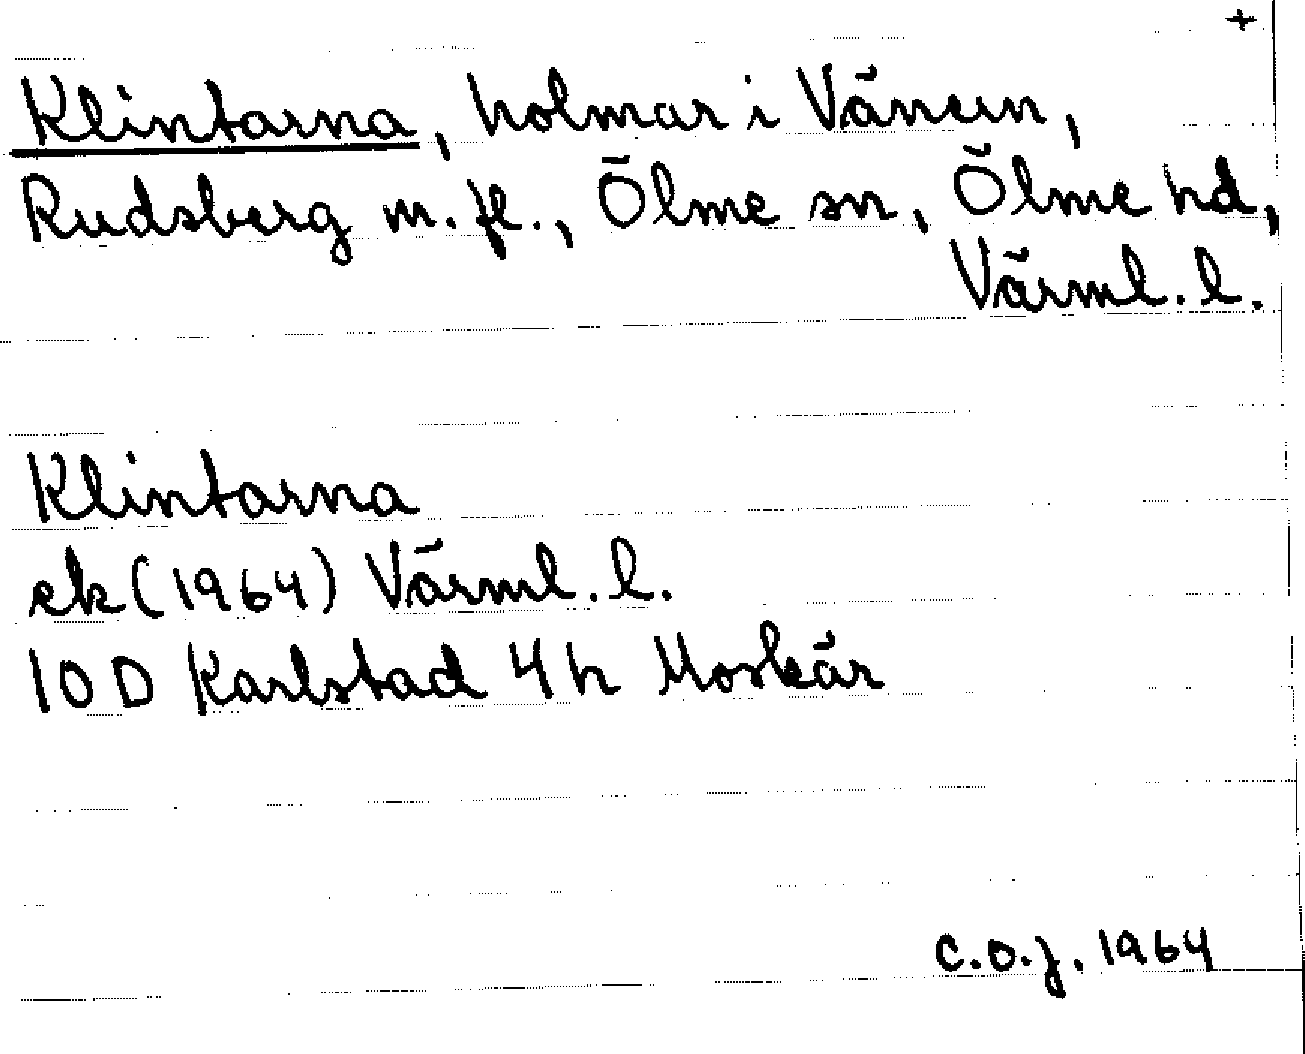 +
Klintarna, holmar i Vänern,
Rudsberg m. fl., Ölme sn, Ölme hd,
Värml. l.
Klintarna
ek (1964) Värml. l.
10 D Karlstad 4 h Moskär
C.O.J. 1964